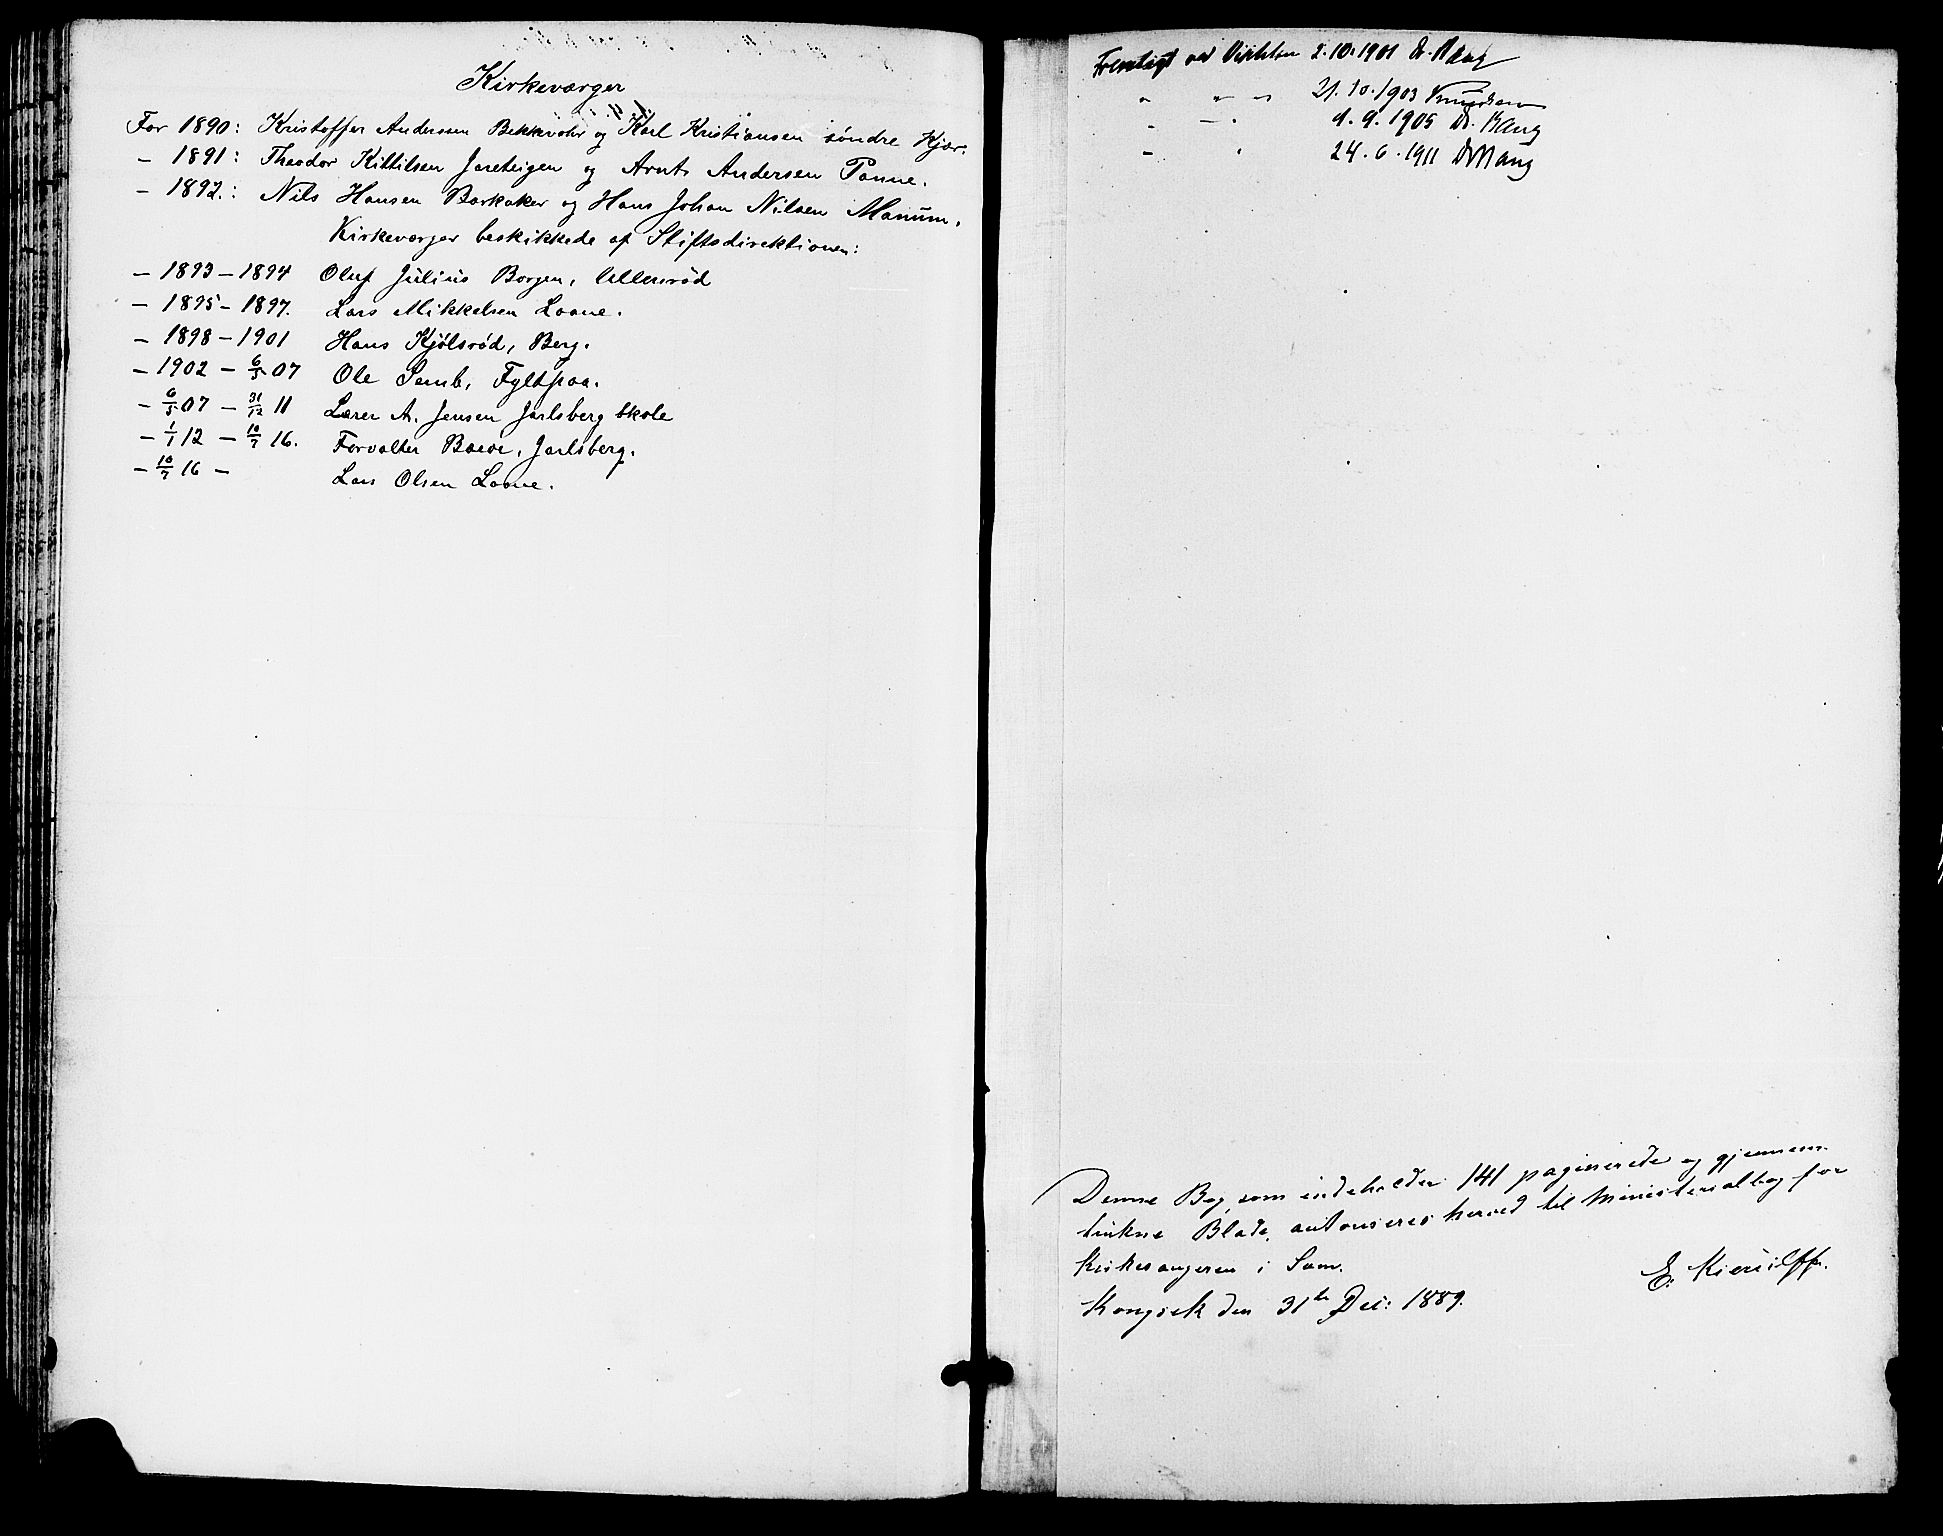 Kirkeværger
For 1890: Kristoffer Anderssen Bekkevolr og Karl Kristiansen søndre Kjær.
– 1891: Theodor Kittilsen Jareteigen og Arnt Andersen Tanne.
– 1892.: Nils Hansen Barkaker og Hans Johan Nilsen Manum.
Kirkeværger beskikkede af Stiftsdirektionen:
– 1893 – 1894 Oluf Julius Borgen, Ullensrød
– 1895 – 1897. Lars Mikkelsen Laane.
– 1898 – 1901 Hans Kjølsrød, Berg.
– 1902 – 6/5 07 Ole Semb, Fyltpaa.
– 6/5 07 – 31/12 11 Lærer A. Jensen Jarlsberg skole
– 1/1 12 – 10/7 16. Forvalter Baeoe, Jarlsberg.
– 10/7 16 – Lars Olsen Laane.
Fremlagt ved Visitatsen 2.10.1901 Dr. Bang
" " " 21.10.1903 Knudsen
– – " 9.9.1905 Dr. Bang
– " 24.6.1911 Dr Bang
Denne Bog, som indeholder 141 paginerede og gjennem-
trukne Blade, autoriseres herved til Ministerialbog for
Kirkesangeren i Sem.
Kongsek den 31te Dec: 1889.
E. Kierulff.